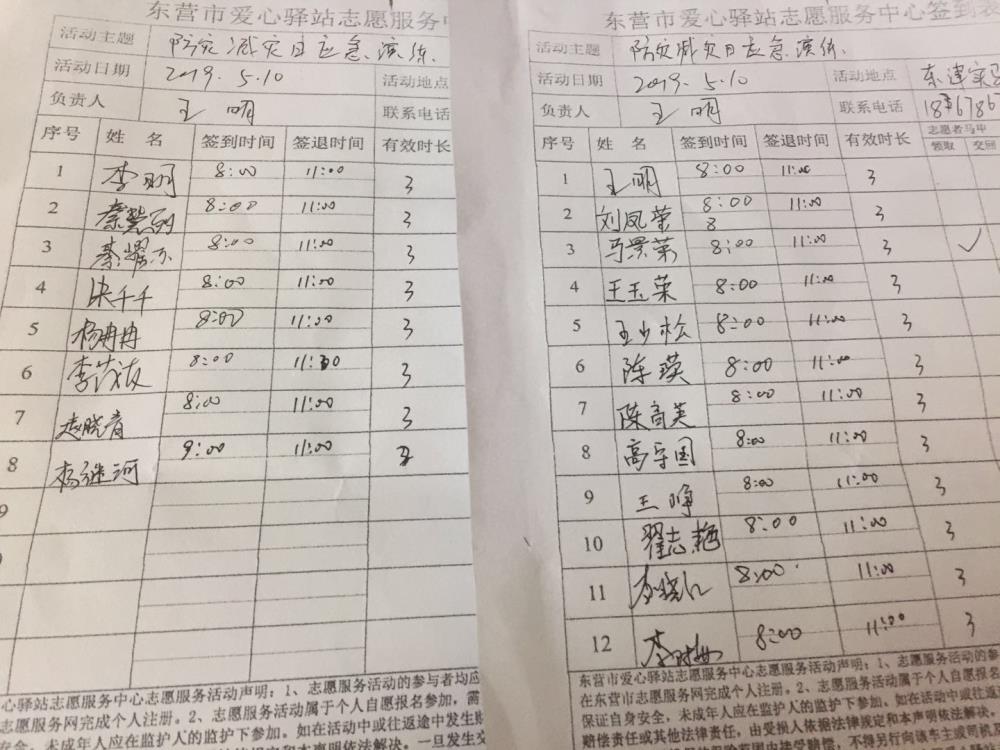 东营市爱心驿站志愿服务中
活动主题 防灾减灾日应急演练.
活动日期 2019.5.10 活动地点
负责人 王明 联系电话
序号 姓名 签到时间 签退时间 有效时长
1 李明 8:00 11:00 3
2 8:00 11:00 3
3 8:00 11:00 3
4 千千 8:00 11:00 3
5 杨冉冉 8:00 11:00 3
6 李茂波 8:00 11:00 3
7 赵晓青 8:00 11:00 3
8 杨继河 9:00 11:00 2
9
心驿站志愿服务中心志愿服务活动声明:1、志愿服务活动的参与者均应
志愿服务网完成个人注册。2、志愿服务活动属于个人自愿报名参加,需
安全,未成年人应在监护人的监护下参加。如在活动中或往返途中发生
法律责任,由受损人依据法律规定和本声明依法解决。一旦发生交
东营市爱心驿站志愿服务中心签到表
活动主题 防灾减灾日应急演练.
活动日期 2019.5.10 活动地点 东津实
负责人 王明 联系电话
序号 姓名 签到时间 签退时间 有效时长 志愿者马甲
领取 交回
1 王明 8:00 11:00 3
2 刘凤荣 8:00 11:00 3
8
3 马景荣 8:00 11:00 3 ✓
4 王玉荣 8:00 11:00 3
5 王少松 8:00 11:00 3
6 陈瑛 8:00 11:00 3
7 陈高英 8:00 11:00 3
8 高守国 8:00 11:00 3
9 王峥 8:00 11:00 3
10 翟志艳 8:00 11:00 3
11 李晓仁 8:00 11:00 3
12 李时 8:00 11:00 3
东营市爱心驿站志愿服务中心志愿服务活动声明:1、志愿服务活动的参
在东营市志愿服务网完成个人注册。2、志愿服务活动属于个人自愿报名
保证自身安全,未成年人应在监护人的监护下参加。如在活动中或往返途
赔偿责任或其他法律责任,由受损人依据法律规定和本声明依法解决。
不得另行向该车主或司机